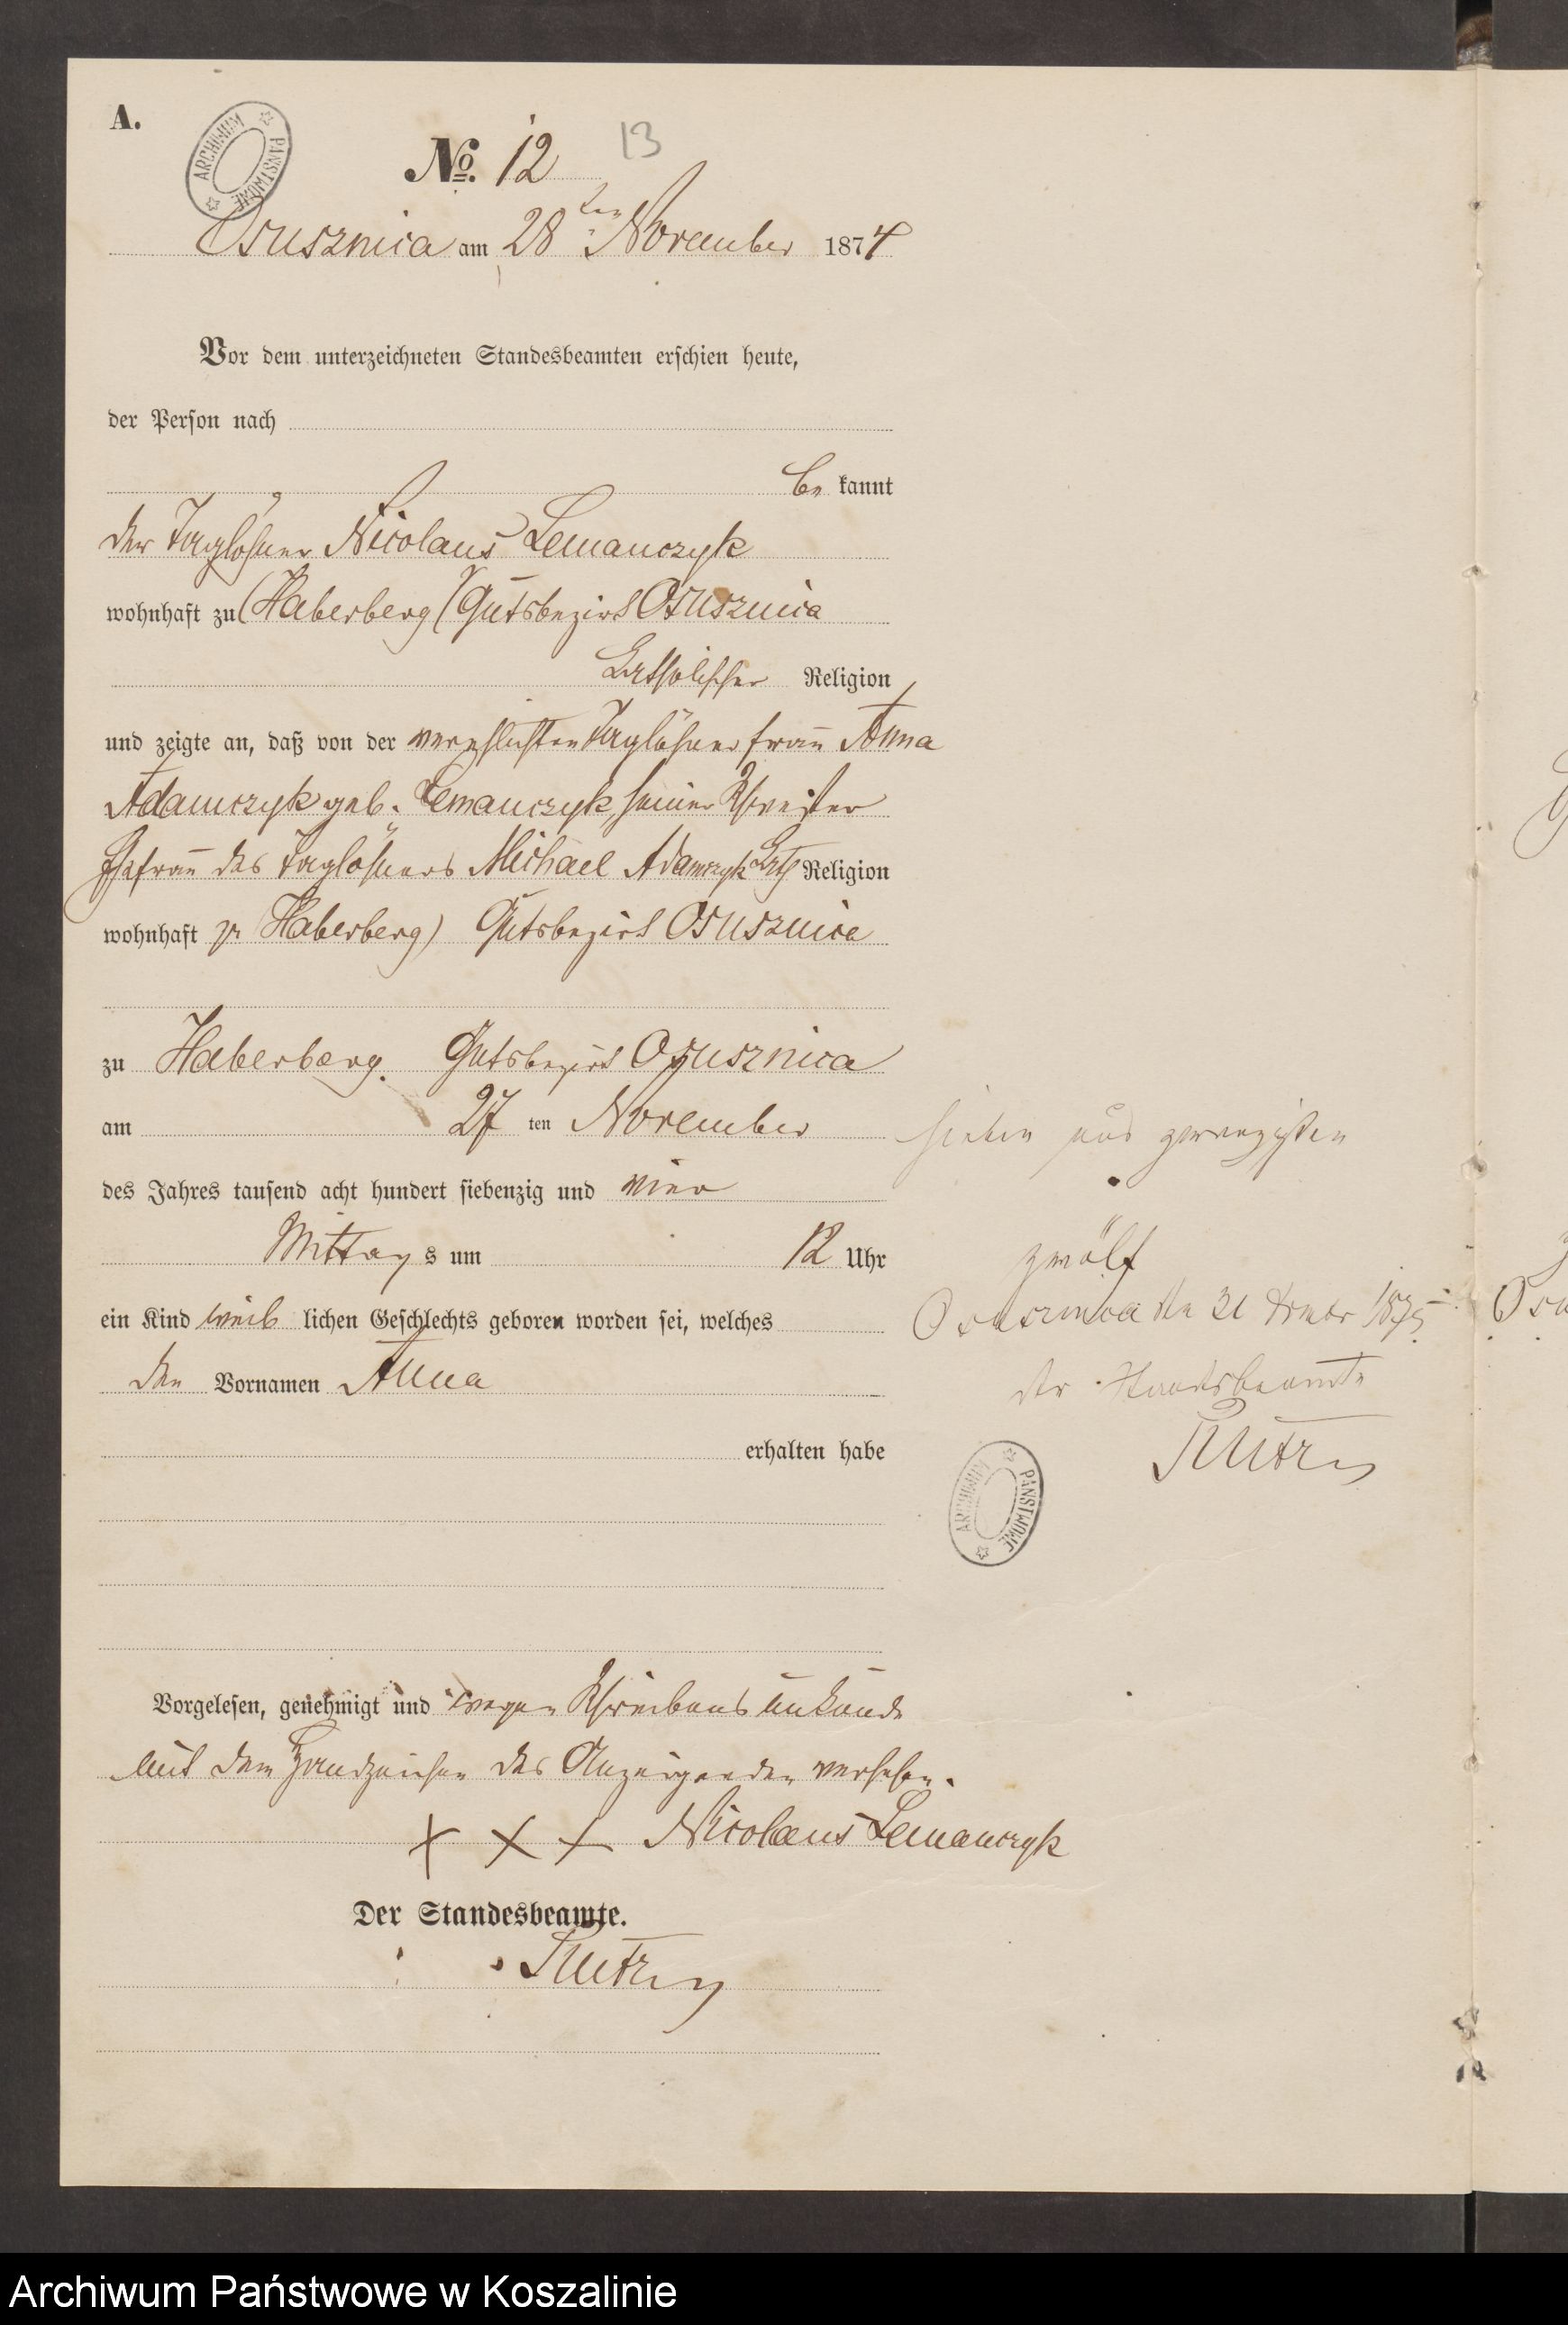 A.
ARCHIWUM PAŃSTWOWE
No. 12
13
Osusznica am 28ten November 1874
Vor dem unterzeichneten Standesbeamten erschien heute,
der Person nach
be kannt
der Taglöhner Nicolaus Lemanczyk
wohnhaft zu (Haberberg) Gutsbezirk Osusznica
katholischer Religion
und zeigte an, daß von der verehlichten Taglöhnerfrau Anna
Adamczyk geb. Lemanczyk, seiner Schwester
Ehefrau des Taglöhners Michael Adamczyk kath Religion
wohnhaft zu Haberberg) Gutsbezirk Osusznica
zu Haberberg. Gutsbezirk Osusznica
am 27 ten November
sieben und zwanzigsten
des Jahres tausend acht hundert siebenzig und vier
Mittag s um 12 Uhr
zwölf
ein Kind weib lichen Geschlechts geboren worden sei, welches
Osusznica den 31 1875
den Vornamen Anna
der Standesbeamte
erhalten habe
ARCHIWUM PAŃSTWOWE
Vorgelesen, genehmigt und wegen Schreibens unkunde
mit dem Handzeichen des Anzeigenden versehen.
+ + + Nicolaus Lemanczyk
Der Standesbeamte.
Archiwum Państwowe w Koszalinie